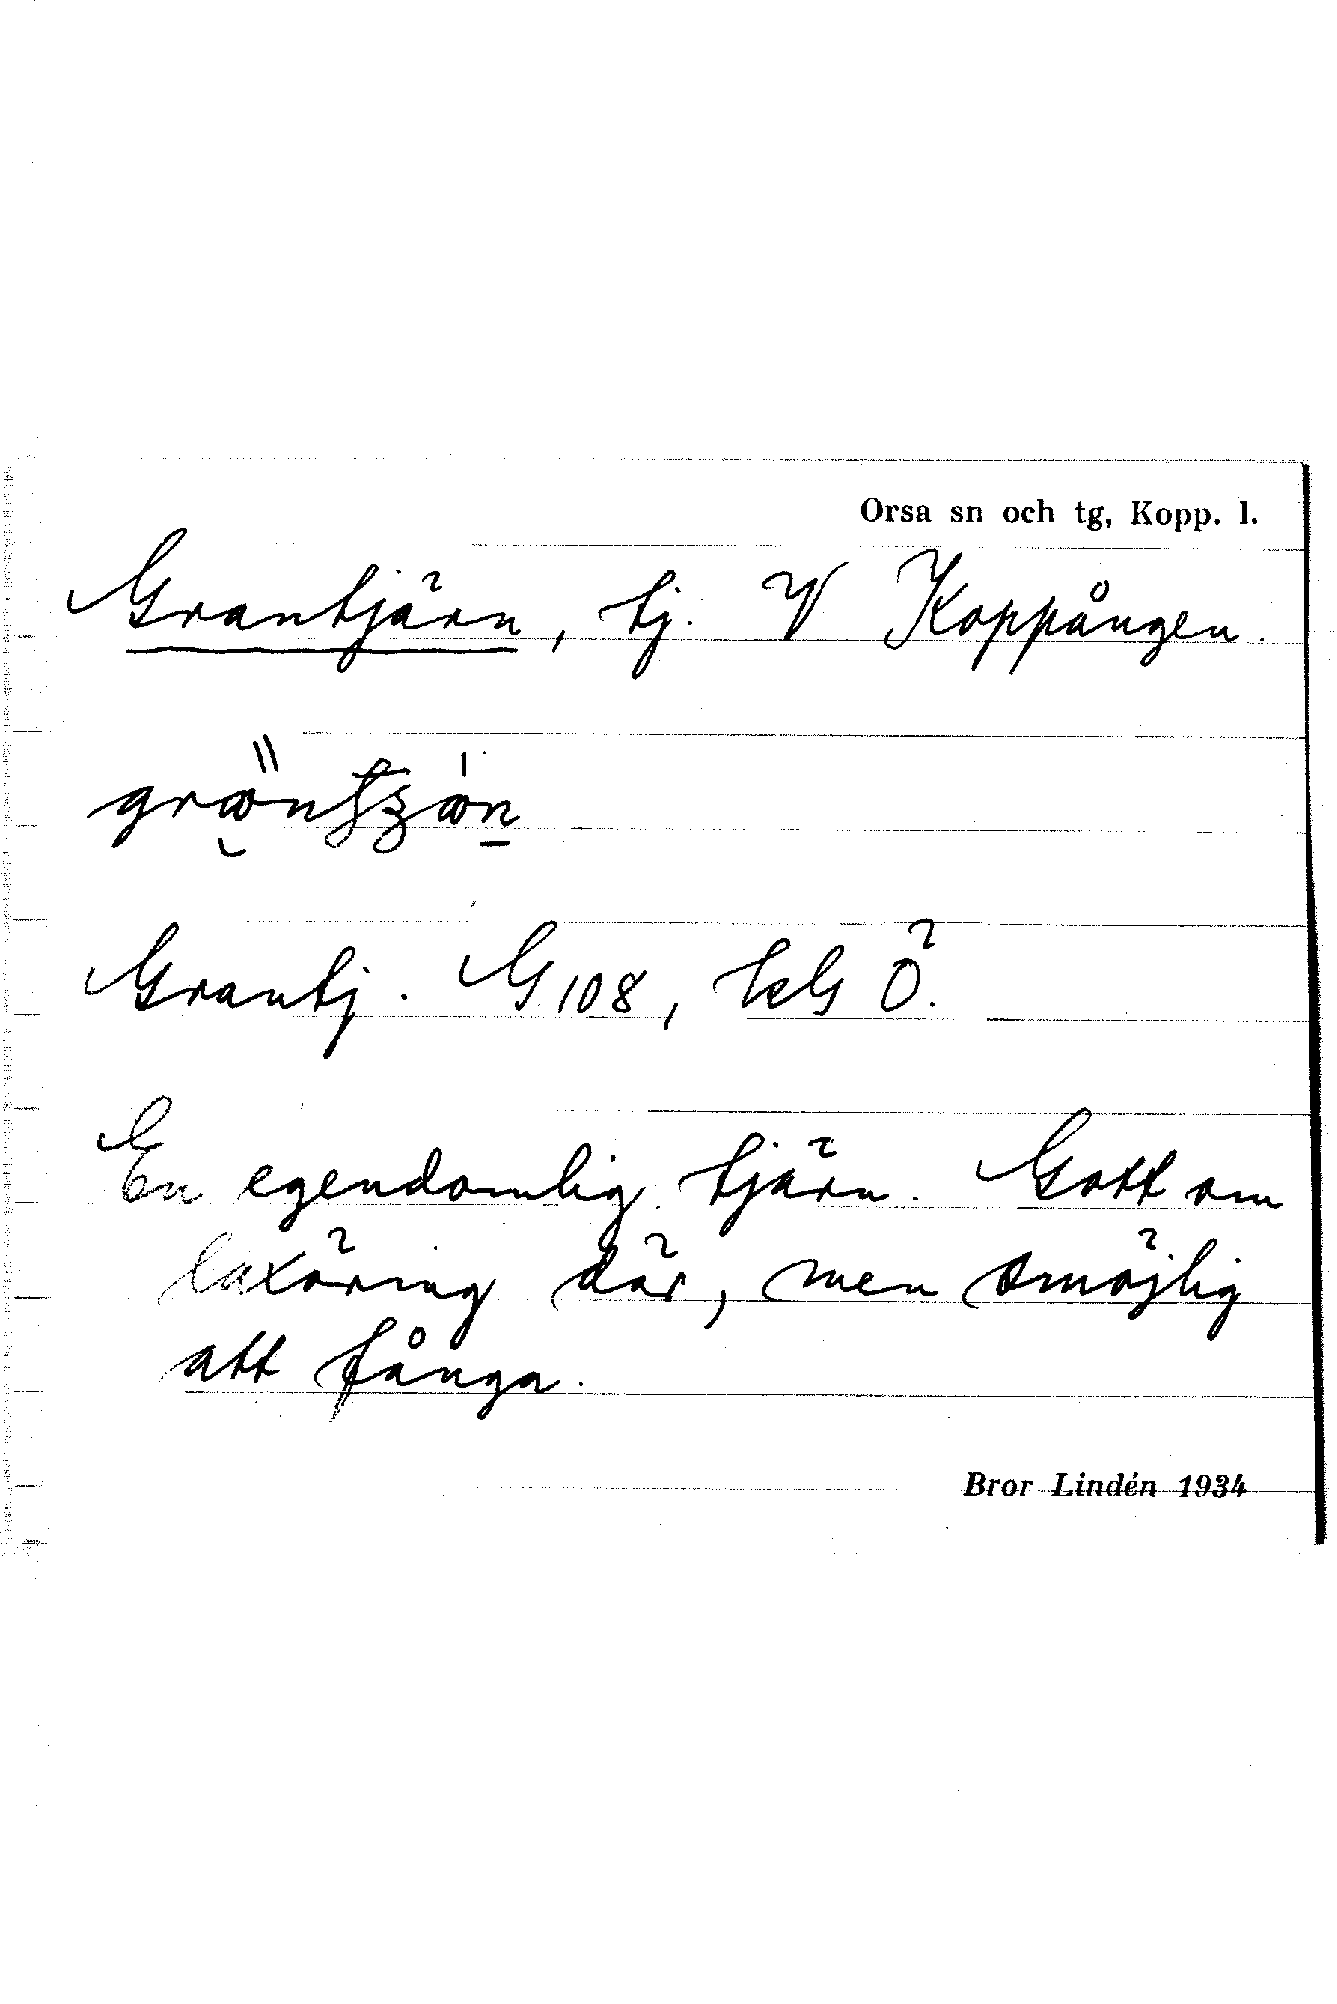 Orsa sn och tg, Kopp. l.
Grantjärn, tj. V Koppången.
Grantj. G 108, kbl Ö.
En egendomlig tjärn. Gott om
laxöring där, men omöjlig
att fånga.
Bror Lindén 1934